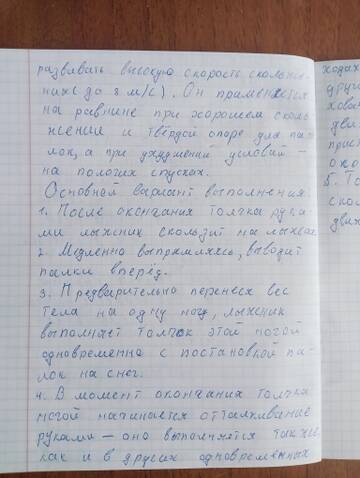 развивать высокую скорость скольже-
ния (до 8 м/с). Он применяется
на равнине при хорошем сколь-
жении и твёрдой опоре для па-
лок, а при ухудшении условий —
на пологих спусках.
Основной вариант выполнения:
1. После окончания толчка рука-
ми лыжник скользит на лыжах
2. Медленно выпрямляясь, выводит
палки вперёд.
3. Предварительно перенеся вес
тела на одну ногу, лыжник
выполняет толчок этой ногой
одновременно с постановкой па-
лок на снег.
4. В момент окончания толчка
ногой начинается отталкивание
руками — оно выполняется так же
как и в других одновременных
ходах
други
двиг
око
5. То
сколь
движ